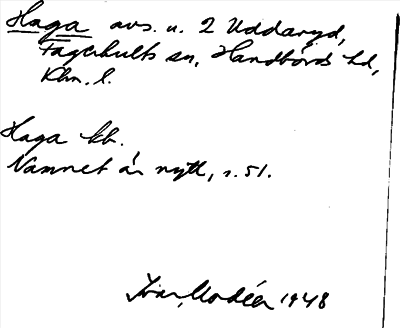 Haga avs. u. 2 Uddaryd,
Fagerhults sn, Handbörds hd,
Klm. l.
Haga kb.
Namnet är nytt, s. 51.
Ivar Modéer 1948